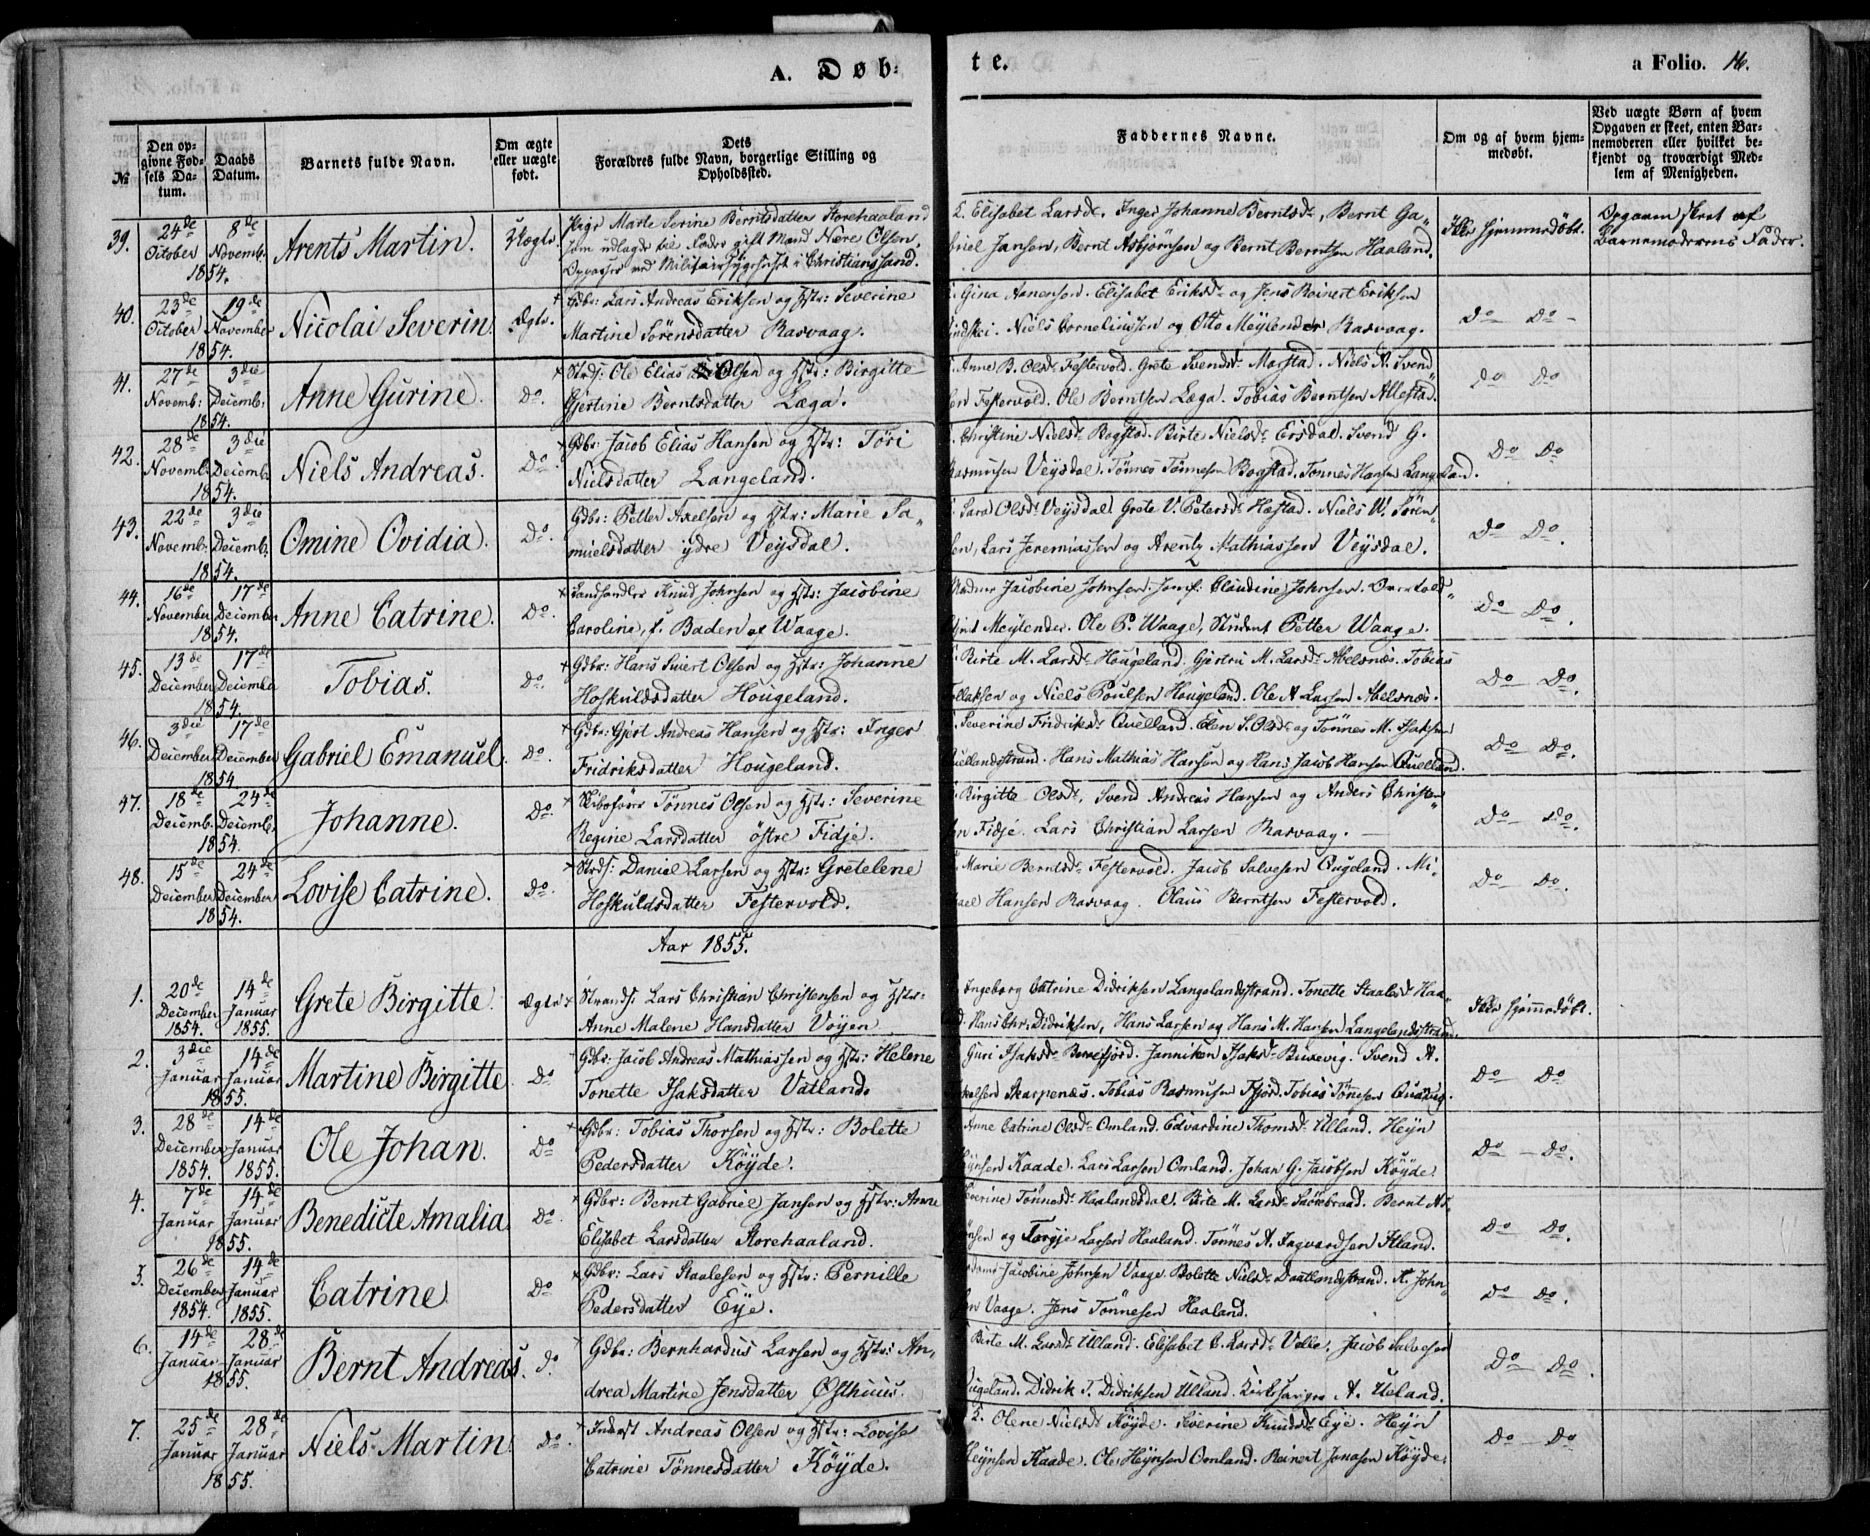 A. Døb-
te.
a Folio. 16.
№
Den op-
givne Fød-
sels Da-
tum.
Daabs
Datum.
Barnets fulde Navn.
Om ægte
eller uægte
født.
Dets
Forældres fulde Navn, borgerlige Stilling og
Opholdssted.
Faddernes Navne.
Om og af hvem hjem-
medøbt.
Ved uægte Børn af hvem
Opgaven er skeet, enten Bar-
nemoderen eller hvilket be-
kjendt og troværdigt Med-
lem af Menigheden.
39.
24de October
8de Novemb.
1854.
Arents Martin.
Uægte.
Pige Marte Serine Berntsdatter Storehaaland
som udlagde til Fader gift Mand Nære Olsen,
Opvarter ved Militairsygehuset i Christianssand.
E. Elisabet Larsd. Inger Johanne Berntsd., Bernt Ga-
briel Jansen, Bernt Asbjørnsen og Bernt Berntsen Haaland.
Ikke hjemmedøbt.
Opgaven skeet af
Barnemoderens Fader.
40.
23de October
19de November
1854.
Nicolai Severin.
Ægte.
Gdbr: Lars Andreas Eriksen og Hstr: Severine
Martine Sørensdatter Rasvaag.
Gina Aanensen. Elisabet Eriksd. og Jens Reinert Eriksen
Niels Corneliussen og Otto Meylender Rasvaag.
Do Do
41.
27de Novemb:
3die Decemb:
1854.
Anne Gurine.
Do.
Strds: Ole Elias Olsen og Hstr: Birgitte
Gjertine Berntsdatter Læga.
Anne B. Olsd. Festervold. Grete Svendsd. Marstad. Niels A. Svend-
sen Festervold. Ole Berntsen Læga. Tobias Berntsen Allestad.
Do Do
42.
28de Novemb.
3die Decemb.
1854.
Niels Andreas.
Do.
Gdbr: Jacob Elias Hansen og Hstr: Tøri
Nielsdatter Langeland.
Christine Nielsd. Bogstad. Birte Nielsd. Ersdal. Svend G.
Rasmussen Veysdal. Tønnes Tønnesen Bogstad. Tønnes Hansen Langeland.
Do Do
43.
22de Novemb.
3die Decemb.
1854.
Omine Ovidia.
Do.
Gdbr: Petter Axelsen og Hstr: Marie Sa-
muelsdatter ydre Veysdal.
Sara Olsd. Veysdal. Grete V. Petersd. Hæstad. Niels W. Søren-
sen, Lars Jeremiassen og Arentz Mathiassen Veysdal.
Do Do.
44.
16de November
17de December
1854.
Anne Catrine.
Do.
Landhandler Knud Johnsen og Hstr: Jacobine
Caroline, f. Baden af Waage.
Madme Jacobine Johnsen. Jomf: Claudine Johnsen.
Meylender. Ole P. Waage, Student Petter Waage.
Do Do.
45.
13de December
17de Decemb.
1854.
Tobias.
Do.
Gdbr: Hans Sivert Olsen og Hstr: Johanne
Hoskuldsdatter Hougeland.
Birte M. Larsd. Hougeland. Gjertru M. Larsd. Abelsnæs. Tobias
Tollaksen og Niels Poulsen Hougeland. Ole A. Larsen Abelsnæs.
Do Do.
46.
3die December
17de December
1854
Gabriel Emanuel.
Do.
Gdbr: Gjert Andreas Hansen og Hstr: Inger
Fridriksdatter Hougeland.
Severine Fridriksd. Quelland. Elen S. Olsd. og Tønnes M. Isaksen
Quellandsstrand. Hans Mathias Hansen og Hans Jacob Hansen Quelland.
Do Do.
47.
18de Decemb.
24de Decemb.
1854.
Johanne.
Do.
Skibsfører Tønnes Olsen og Hstr: Severine
Regine Larsdatter østre Fidje.
Birgitte Olsd., Svend Andreas Hansen og Anders Christen-
sen Fidje. Lars Christian Larsen Rasvaag.
Do Do.
48.
15de December
24de December
1854.
Lovise Catrine.
Do.
Strds: Daniel Larsen og Hstr: Gretelene
Hoskuldsdatter Festervold.
Marie Berntsd. Festervold. Jacob Salvesen Øugeland. Mi-
kael Hansen Rasvaag. Olaus Berntsen Festervold.
Do Do.
Aar 1855.
1.
20de December 1854.
14de Januar 1855.
Grete Birgitte.
Ægte
Strands: Lars Christian Christensen og Hstr:
Anne Malene Hansdatter Vøyen
Ingeborg Catrine Didriksen Langelandsstrand. Tonette Staalesd. Haa-
Hans Chr. Didriksen, Hans Larsen og Hans M. Hansen Langelandsstrand.
Ikke hjemmedøbt.
2.
3die Januar
14de Januar
1855.
Martine Birgitte
Do
Gdbr: Jacob Andreas Mathiassen og Hstr: Helene
Tonette Isaksdatter Vatland.
Guri Isaksd. Janniken Isaksd. Buvevig. Svend A.
Skarpenæs. Tobias Rasmusen Fjord. Tobias Tønnesen
Do Do.
3.
28de December 1854.
14de Januar 1855.
Ole Johan.
Do
Gdbr: Tobias Thorsen og Hstr: Bolette
Pedersdatter Køyde.
Anne Catrine Olsd. Omland. Edvardine Thomsd. Ulland. Heyn
Heynsen Kaade. Lars Larsen Omland. Johan G. Jacobsen Køyde.
Do Do.
4.
7de Januar
14de Januar
1855.
Benedicte Amalia
Do.
Gdbr: Bernt Gabriel Jansen og Hstr: Anne
Elisabet Larsdatter Storehaaland.
Severine Tønnesd. Haalandsdal. Birte M. Larsd. Bernt As-
bjørnsen og Torgje Larsen Haaland. Tønnes A. Ingvardsen Htland.
Do Do.
5.
26de December 1854.
14de Januar 1855.
Catrine
Do
Gdbr: Lars Staalesen og Hstr: Pernille
Pedersdatter Eye.
Jacobine Johnsen Vaage. Bolette Nielsd. Daatlandstrand. K. John-
sen Vaage. Jens Tønnesen Haaland.
Do Do.
6.
14de Januar
28de Januar
1855.
Bernt Andreas.
Do
Gdbr: Bernhardus Larsen og Hstr: An-
drea Martine Jensdatter Østhuus.
Birte M. Larsd. Ulland. Elisabet C. Larsd. Velle, Jacob Salvesen
Øugeland. Didrik T. Didriksen Ulland. Kirkesanger A. Ueland.
Do Do.
7.
25de Januar
28de Januar
1855.
Niels Martin
Do.
Inderst Andreas Olsen og Hstr: Lovise
Catrine Tønnesdatter Køyde.
E. Olene Nielsd. Køyde. Severine Knudsd. Eye. Heyn
Heynsen Kaade. Ole Heynsen Omland. Reinert Jonasen Køyde.
Do Do